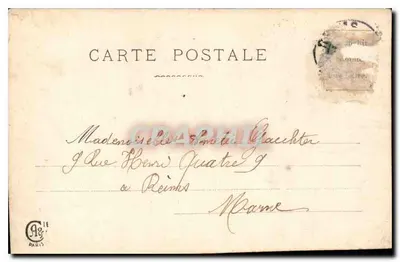 CARTE POSTALE
Mademoiselle Gauthier
9 Rue Henri Quatre 9
à Reims
Marne
PARIS